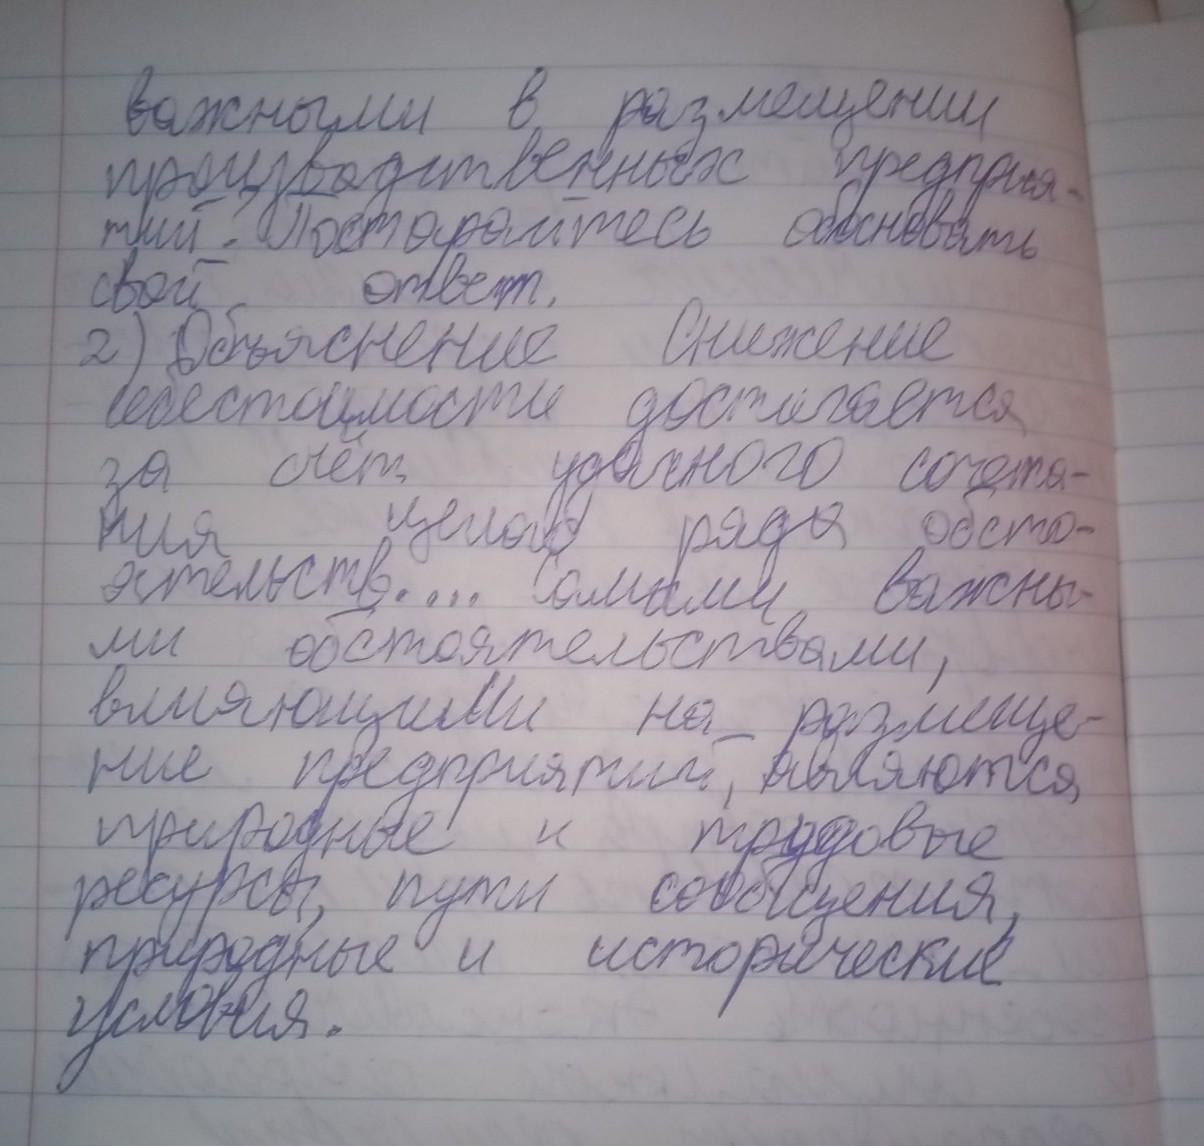 важными в размещении
производственных предприя-
тий. Постарайтесь обосновать
свой ответ.
2) Объяснение Снижение
себестоимости достигается
за счёт удачного сочета-
ния целого ряда обсто-
ятельств.... Самыми важны-
ми обстоятельствами,
влияющими на размеще-
ние предприятий, являются
природные и трудовые
ресурсы, пути сообщения,
природные и исторические
условия.